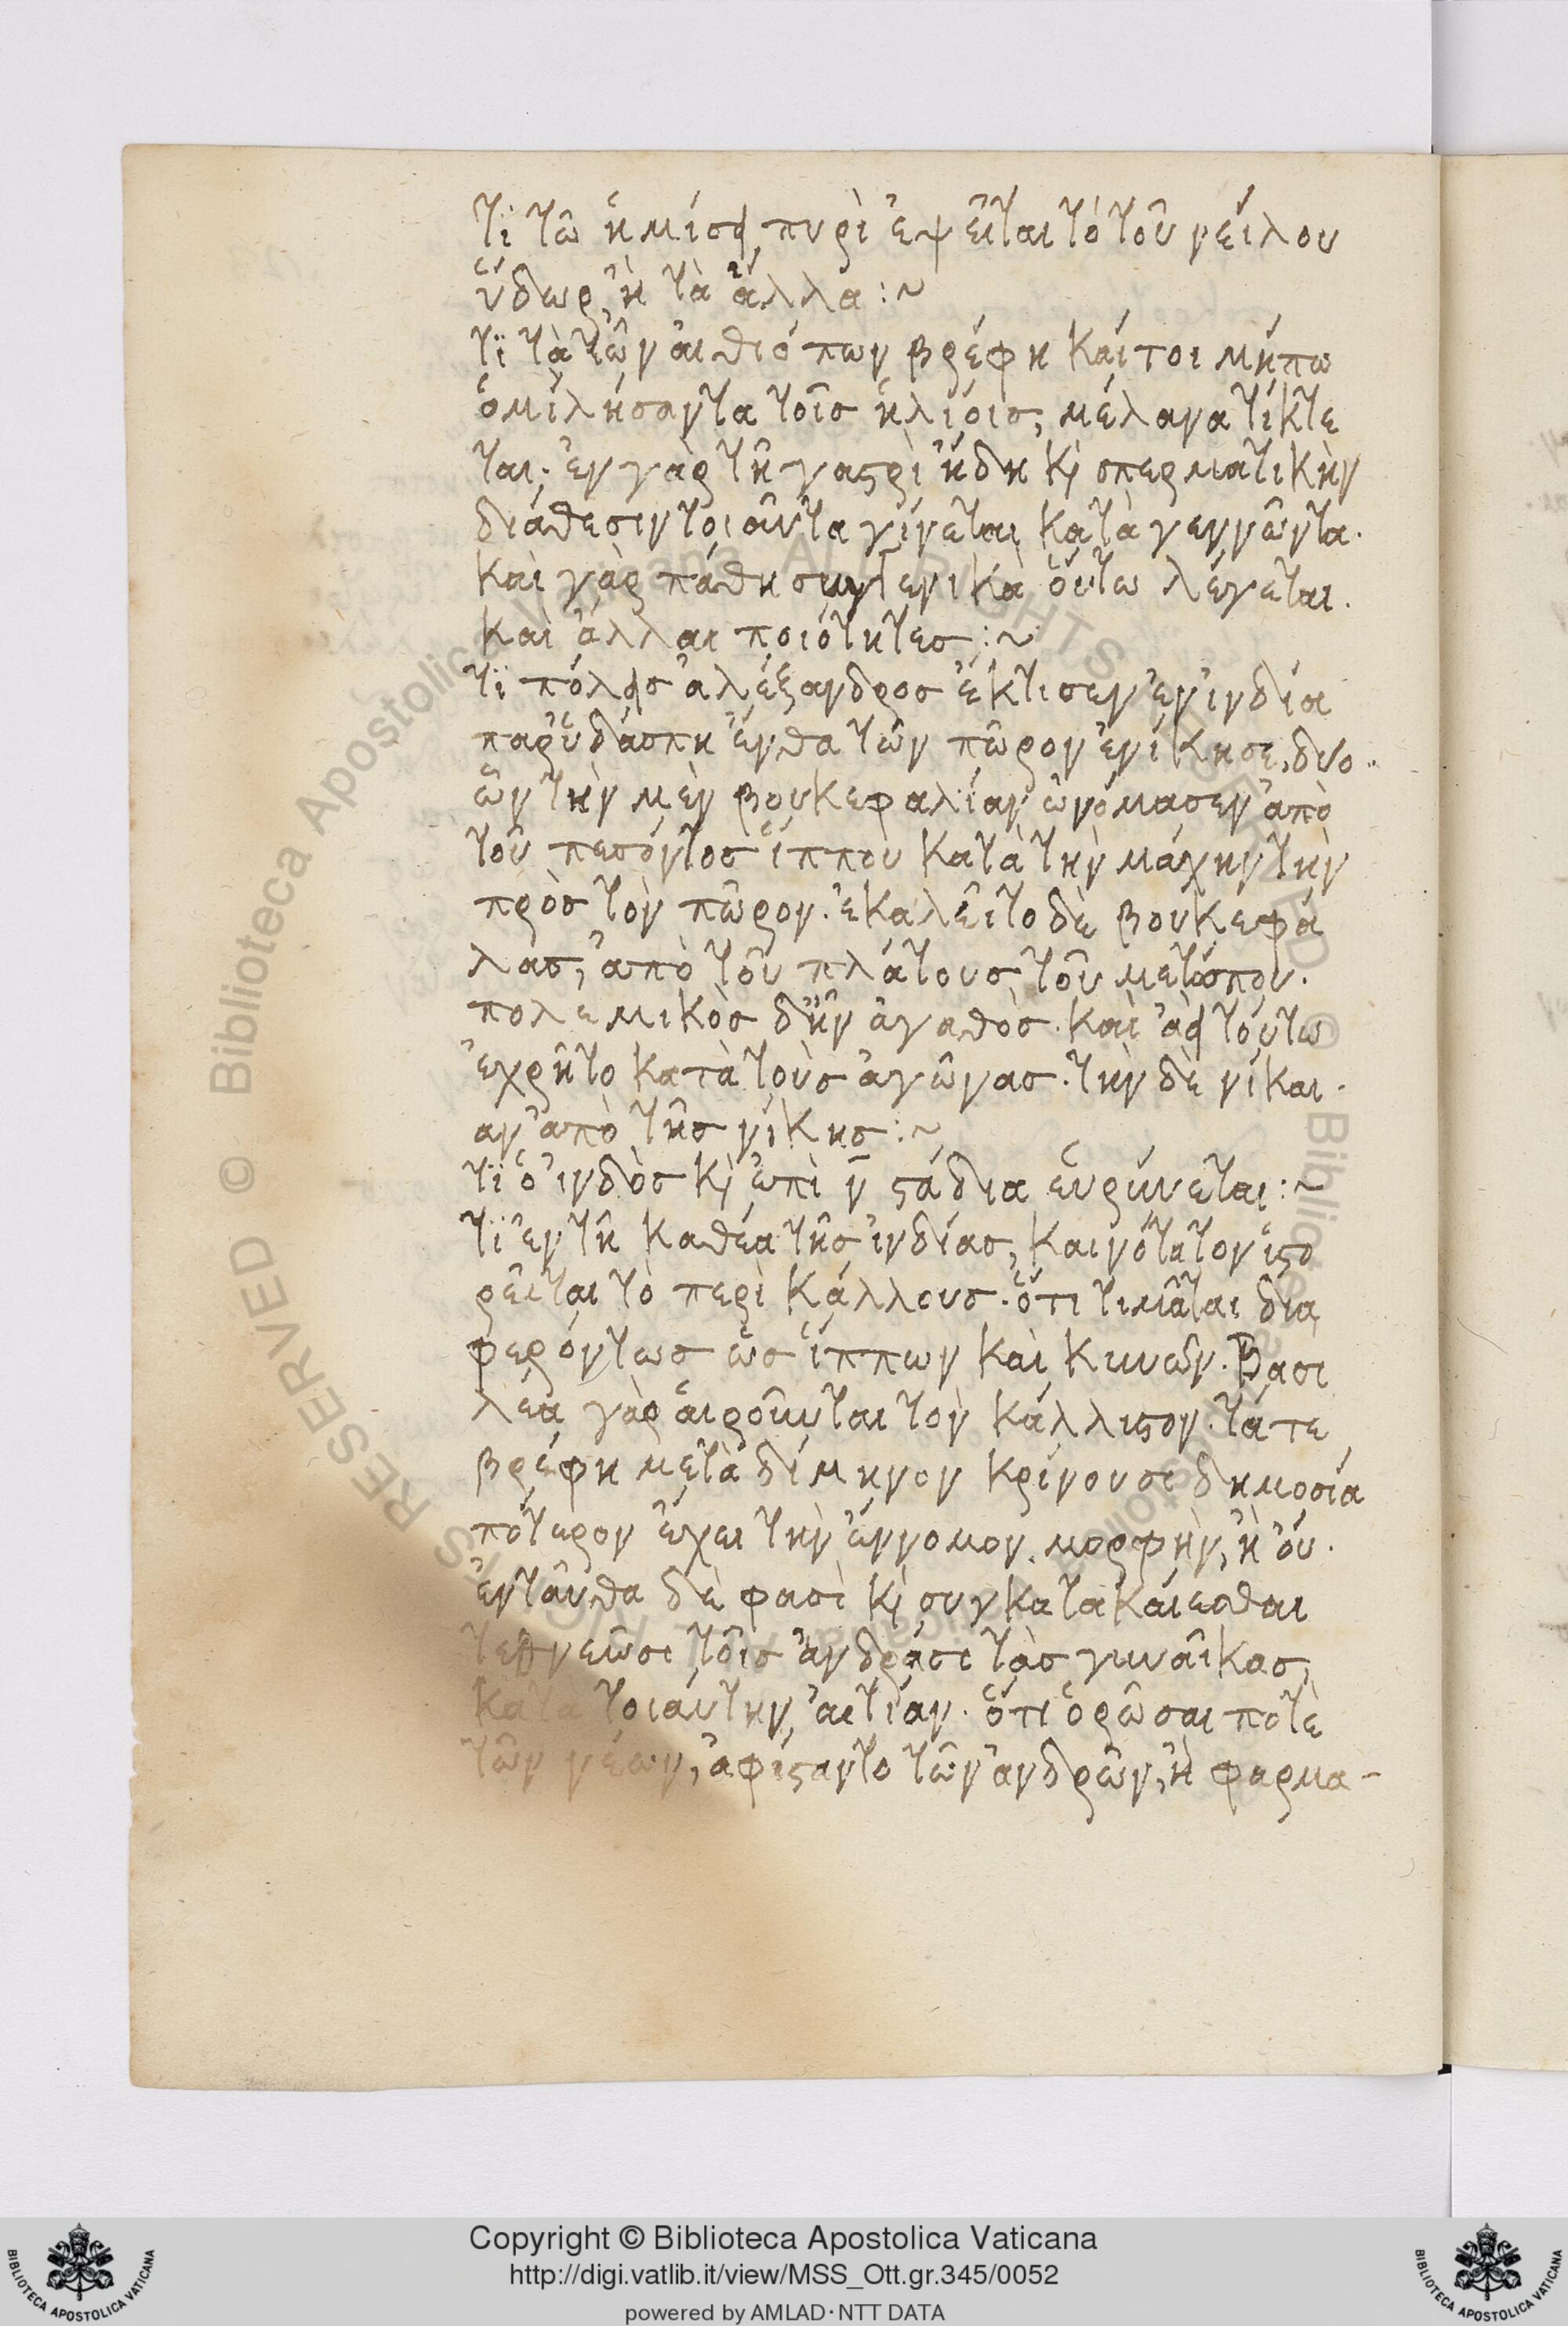 τϊ τῶ ἡμίσει πυρὶ ἑψεῖται τὸ τοῦ νείλου
ὕδωρ, ἢ τὰ ἄλλα :~
τϊ τὰ τῶν αἰθιόπων βρέφη καίτοι μήπω
ὁμιλήσαντα τοῖς ἡλίοις, μέλανα τίκτε
ται· ἐν γὰρ τῆ γαστρὶ ἤδη κὶ σπερματικὴν
διάθεσιν τοιαῦτα γίνεται κατὰ γεννῶντα.
καὶ γὰρ πάθη συγγενικὰ οὕτω λέγεται.
καὶ ἄλλαι ποιότητες :~
τϊ πόλεις ἀλέξανδρος ἔκτισεν ἐν ἰνδία
παρ' ὑδάσπη ἔνθα τῶν πῶρον ἐνίκησε, δύο.
ὧν τὴν μὲν βουκεφαλίαν ὠνόμασεν ἀπὸ
τοῦ πεσόντος ἵππου κατὰ τὴν μάχην τὴν
πρὸς τὸν πῶρον. ἐκαλεῖτο δὲ βουκεφά
λας, ἀπὸ τοῦ πλάτους τοῦ μετώπου.
πολεμικὸς δ' ἦν ἀγαθὸς. καὶ ἀεὶ τούτω
ἐχρῆτο κατὰ τοὺς ἀγῶνας. τὴν δὲ νίκαι
αν ἀπὸ τῆς νίκης :~
τϊ ὁ ἰνδὸς κὶ ἐπὶ ν̄ στάδια εὐρύνεται :~
τϊ ἐν τῆ καθέα τῆς ἰνδίας, καινότατον ἱστο
ρεῖται τὸ περὶ κάλλους. ὅτι τιμᾶται δια
φερόντως ὡς ἵππων καὶ κυνῶν. Βασι
λέα γὰρ αἱροῦνται τὸν κάλλιστον. τά τε
βρέφη μετὰ δίμηνον κρίνουσι δημοσία
πότερον ἔχει τὴν ἔννομον μορφὴν, ἢ οὔ.
ἐνταῦθα δὲ φασὶ κὶ συγκατακαίεσθαι
τεθνεῶσι τοῖς ἀνδράσι τὰς γυναῖκας,
κατὰ τοιαύτην αἰτίαν. ὅτι ὁρῶσαι ποτὲ
τῶν νέων, ἀφίσταντο τῶν ἀνδρῶν, ἢ φαρμα-
© Biblioteca Apostolica Vaticana ALL RIGHTS RESERVED © Biblioteca Apostolica Vaticana ALL RIGHTS RESERVED
BIBLIOTECA APOSTOLICA VATICANA
Copyright © Biblioteca Apostolica Vaticana
http://digi.vatlib.it/view/MSS_Ott.gr.345/0052
powered by AMLAD·NTT DATA
BIBLIOTECA APOSTOLICA VATICANA